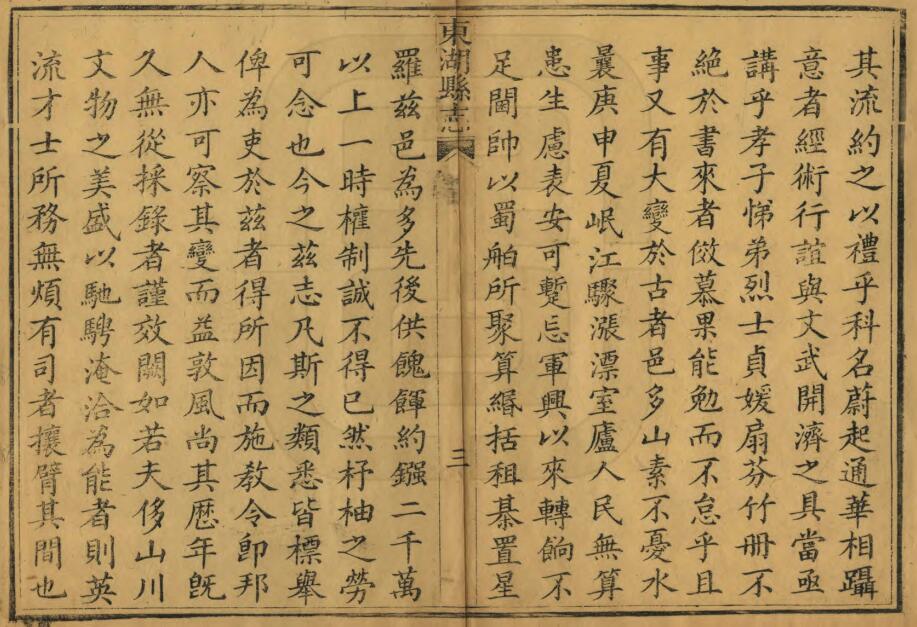 其流約之以禮乎科名蔚起通華相躡
意者經術行誼與文武開濟之具當亟
講乎孝子悌弟烈士貞媛扇芬竹冊不
絶於書來者倣慕果能勉而不怠乎且
事又有大變於古者邑多山素不憂水
曩庚申夏岷江驟漲漂室廬人民無算
患生慮表安可蹔忘軍興以來轉餉不
足閫帥以蜀舶所聚算緡括租棊置星
東湖縣志
三
羅茲邑為多先後供餽餫約鏹二千萬
以上一時權制誠不得已然杼柚之勞
可念也今之茲志凡斯之類悉皆標舉
俾為吏於茲者得所因而施教令卽邦
人亦可察其變而益敦風尚其歷年旣
久無從採錄者謹效闕如若夫侈山川
文物之美盛以馳騁淹洽為能者則英
流才士所務無煩有司者攘臂其間也